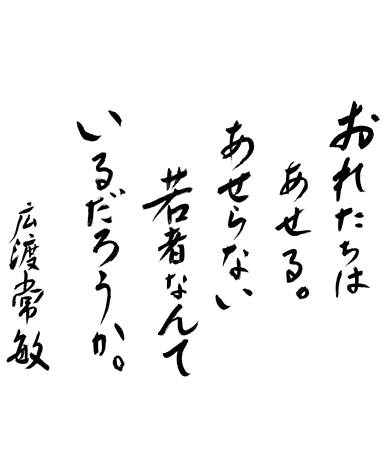 おれたちは
あせる。
あせらない
若者なんて
いるだろうか。
広渡常敏